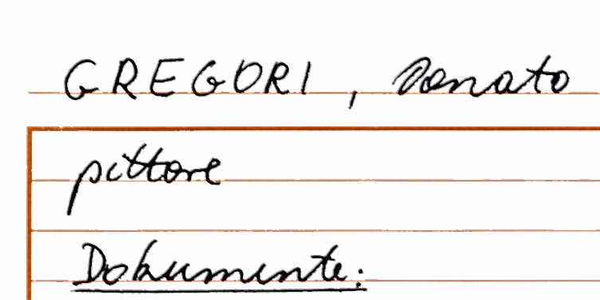 GREGORI, Donato
pittore
Dokumente: